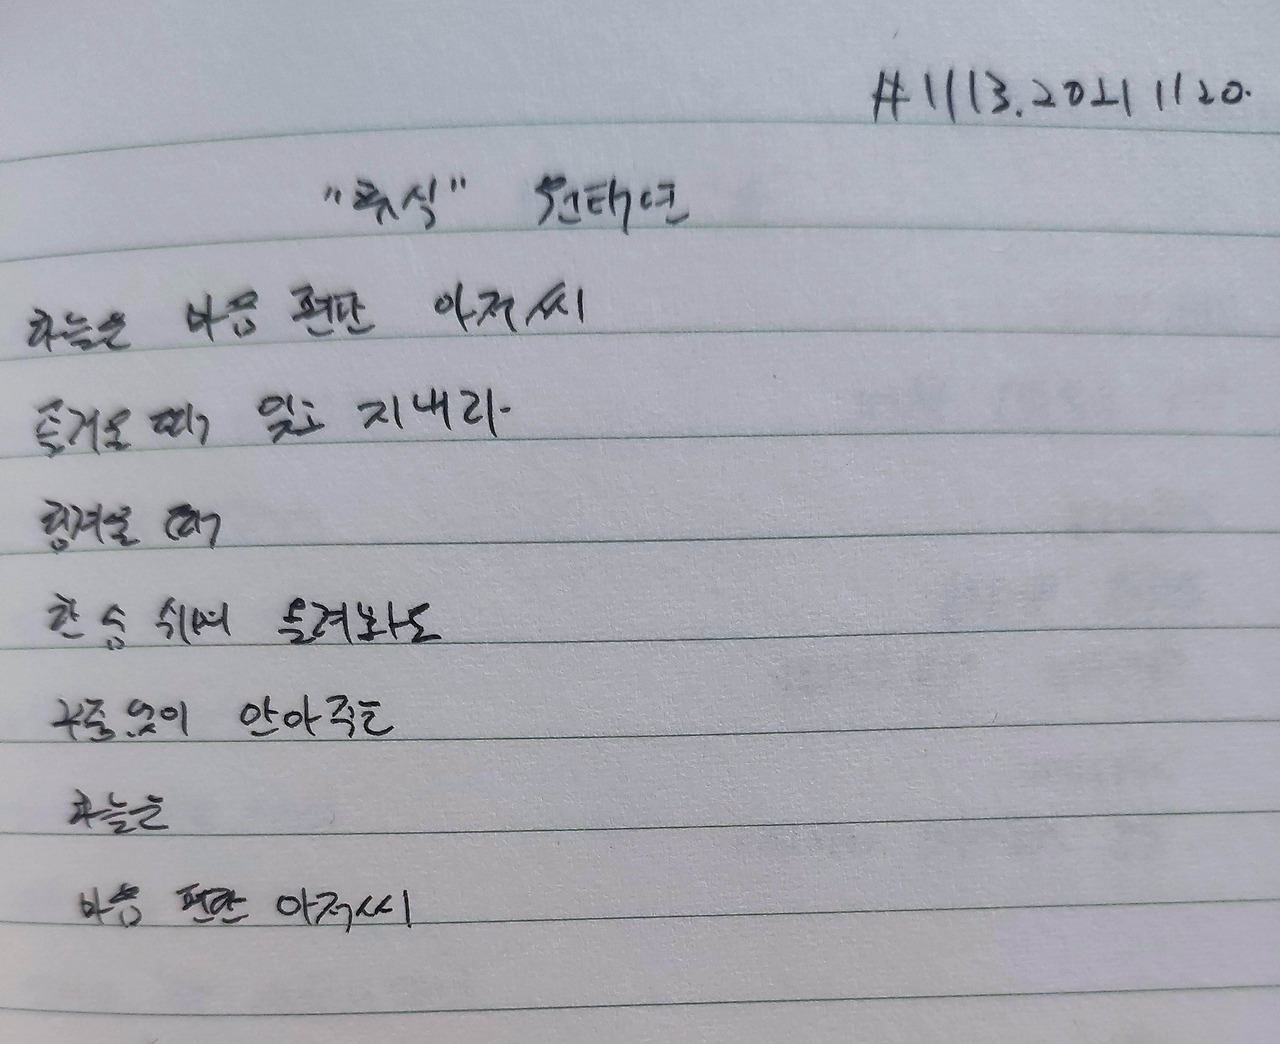 #1113. 2021 11 20.
"휴식" 원태연
하늘은 마음 편한 아저씨
즐거울 때 잊고 지내라
힘겨울 때
한 숨 쉬며 올려봐도
구름없이 안아주는
하늘은
마음 편한 아저씨